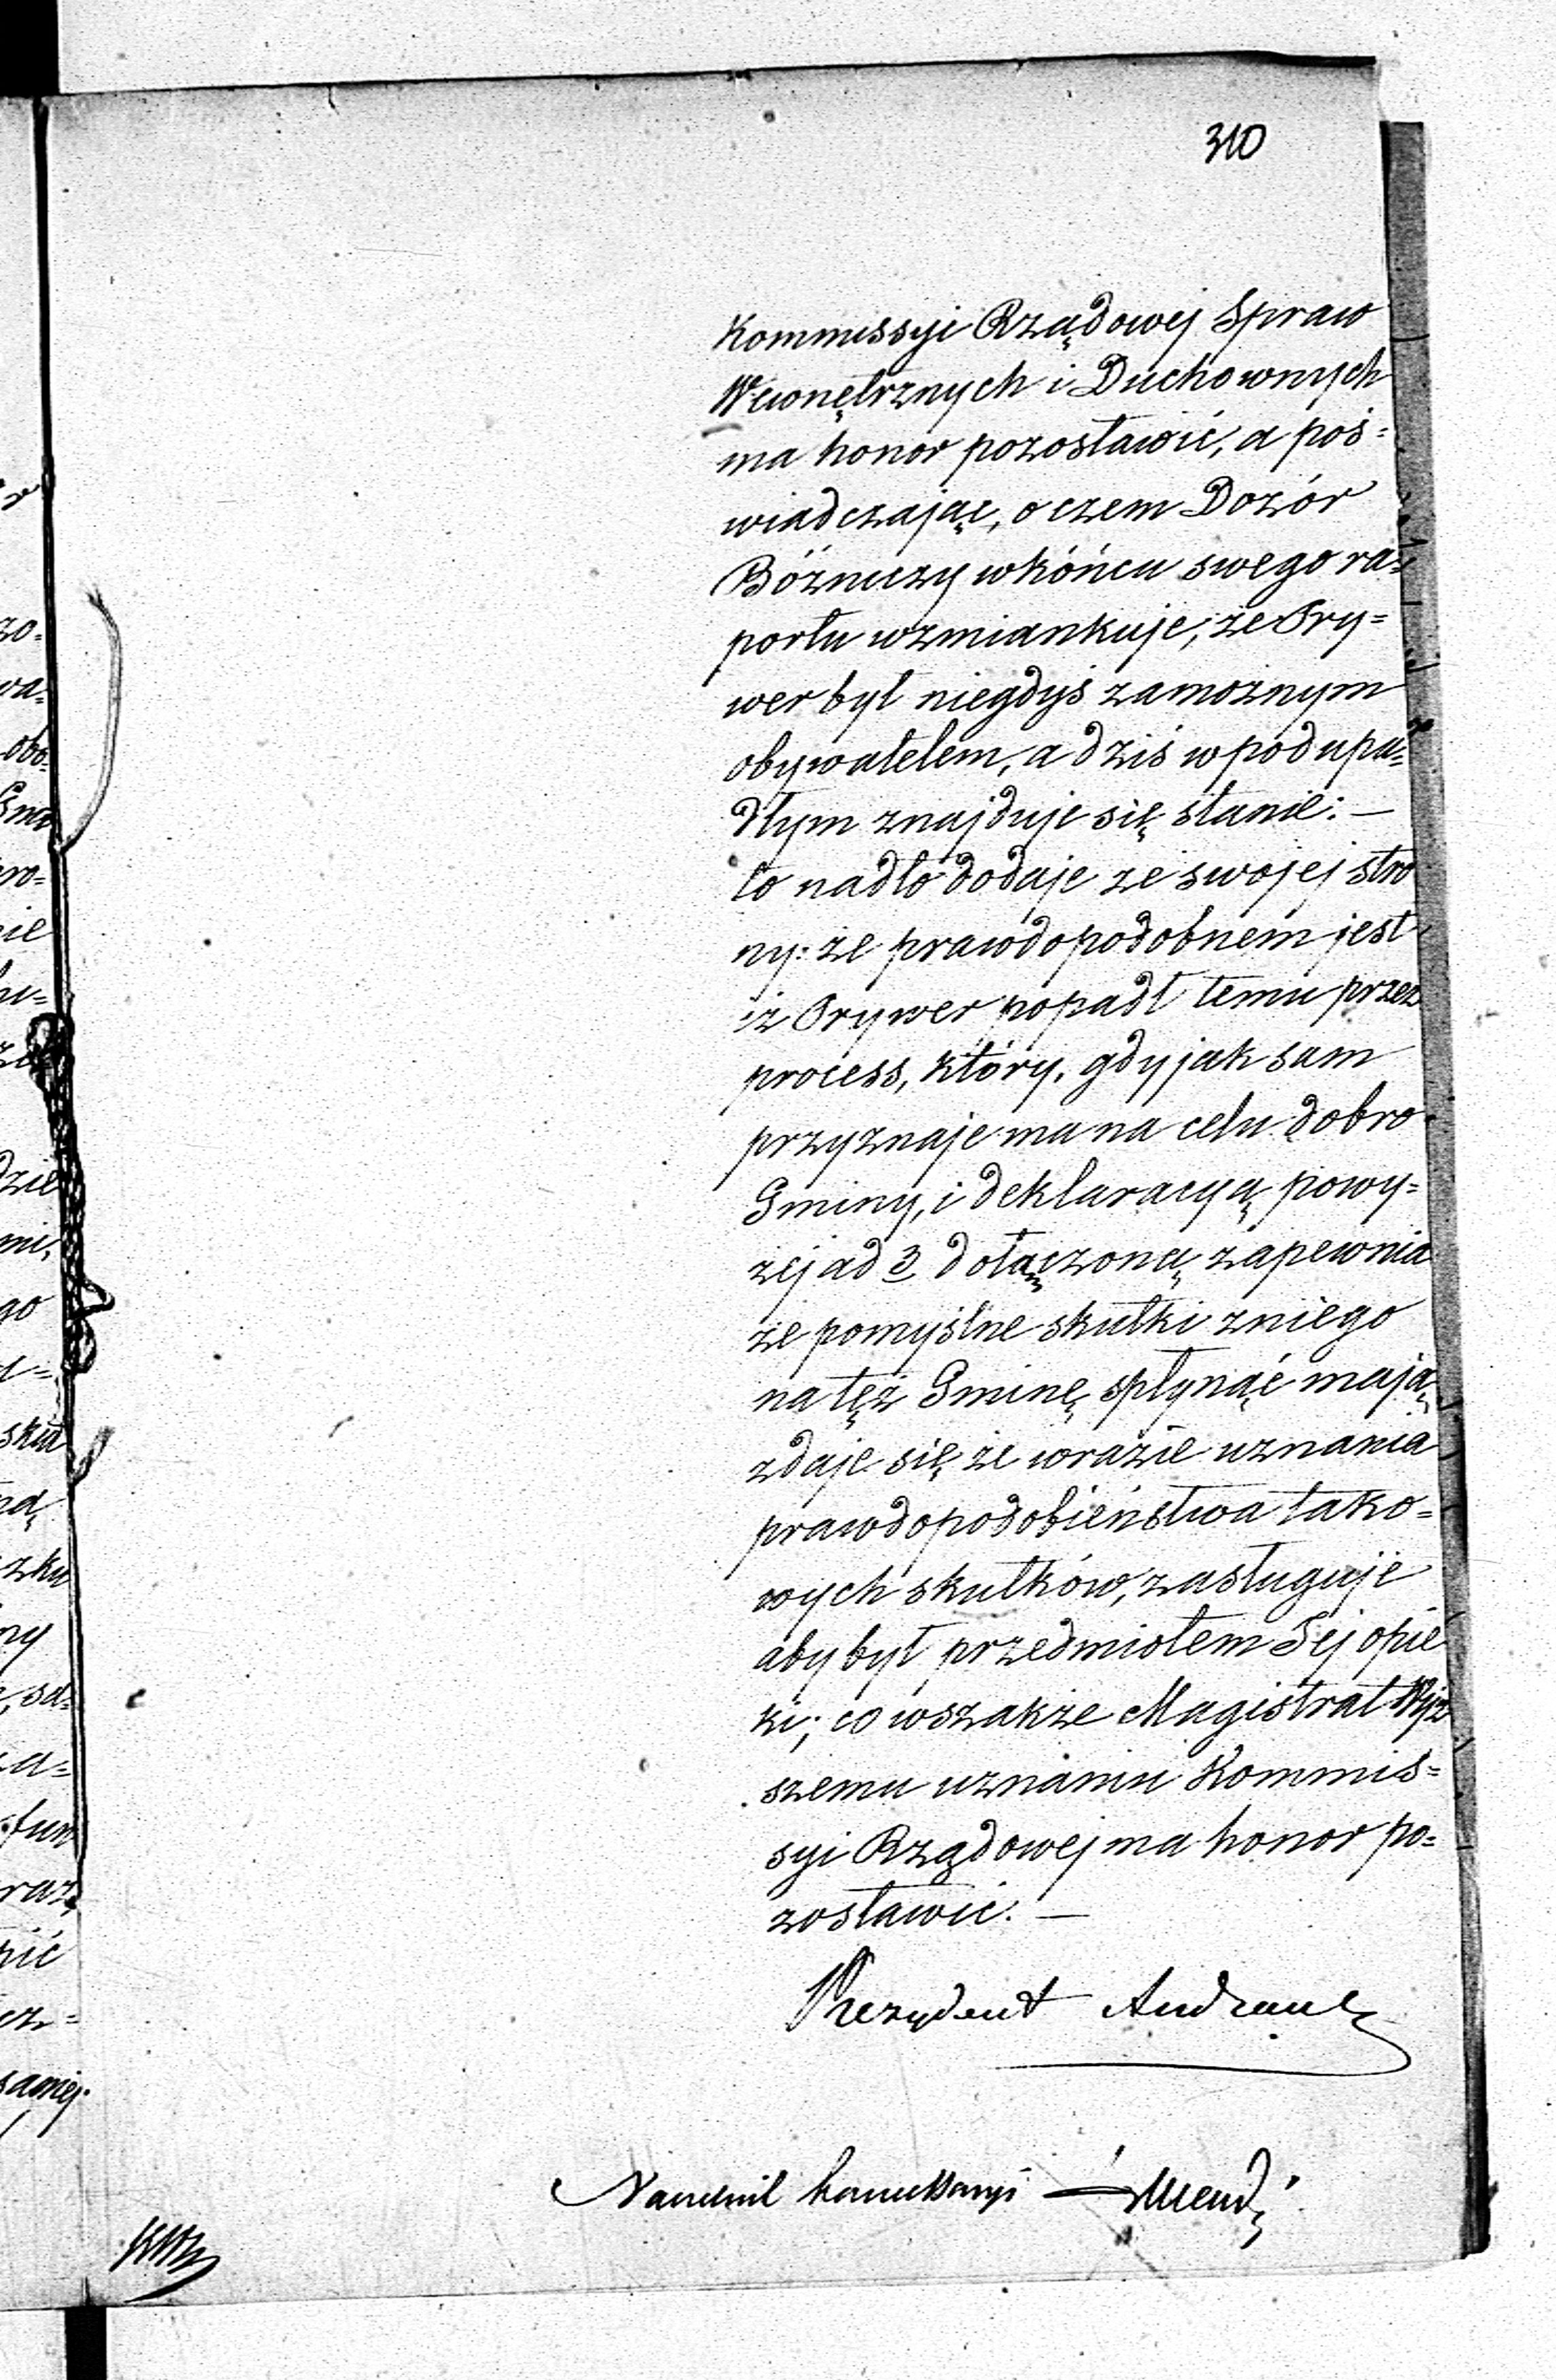 310
Kommissyi Rządowej Spraw
Wewnętrznych i Duchownych
ma honor pozostawić, a poś=
wiadczając, o czem Dozór
Bóżniczy w końcu swego ra=
portu wzmiankuje, że Pry=
wer był niegdyś zamożnym
obywatelem, a dziś w podupa=
dłym znajduje się stanie: —
to nadto dodaje ze swojej stro
ny: że prawdopodobnem jest
iż Prywer popadł temu przez
process, który, gdy jak sam
przyznaje ma na celu dobro
Gminy, i deklaracyą powy=
żej ad 3 dołączoną zapewnia
że pomyślne skutki z niego
na tęż Gminę spłynąć mają,
zdaje się że w razie uznania
prawdopodobieństwa tako=
wych skutków, zasługuje
aby był przedmiotem Jej opie
ki; co wszakże Magistrat Wyż
szemu uznaniu Kommis=
syi Rządowej ma honor po=
zostawić. —
Prezydent
Naczelnik